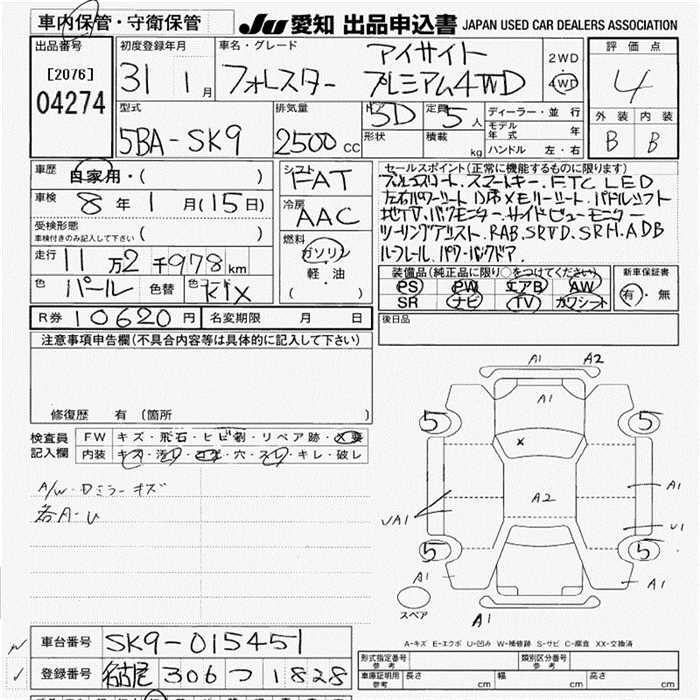 車内保管・守衛保管
JU 愛知 出品申込書 JAPAN USED CAR DEALERS ASSOCIATION
出品番号
[2076]
04274
初度登録年月
31 1月
車名・グレード
アイサイト
フォレスター プレミアム4WD
2WD
4WD
評価点
4
外装 内装
B B
型式
5BA-SK9
排気量
2500 CC
ドア
5D
形状
定員
5人
積載
kg
ディーラー・並行
モデル年式 年
ハンドル 左・右
車歴
自家用・( )
車検
8年1月(15日)
受検形態
車検付きのみ記入して下さい ( )
走行
11万2千978km
色
パール
色替
色
シフト
FAT
冷房
AAC
燃料
ガソリン
軽・油
( )
セールスポイント(正常に機能するものに限ります)
スマートキー.ETC LED
ツーリングアシスト.RAB.SRVD.SRH.ADB
ルーフレール.パワーバックドア.
装備品(純正品に限り○をつけてください)
PS PW エアB AW
SR ナビ TV カワシート
新車保証書
有・無
R券 10620円
名変期限 月 日
後日品
注意事項申告欄(不具合内容等は具体的に記入して下さい)
修復歴 有(箇所 )
検査員
記入欄
FW キズ・飛石・ヒビ割・リペア跡・X要
内装 キズ・汚レ・コゲ・穴・スレ・キレ・破レ
A/W・Dミラーキズ
各A-U
A1 A2
A1
5 5
A2
UA1
A1
U1
5 5
A1 A1
スペア
A1
A-キズ E-エクボ U-凹み W-補修跡 S-サビ C-腐食 XX-交換済
車台番号 SK9-015451
登録番号 名古屋 306 つ 1828
形式指定番号
参考
類別区分番号
参考
車庫証明用
参考
長さ cm 幅 cm 高さ cm